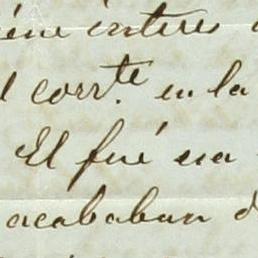 interes
corr.te en la
El fué una
acababan d